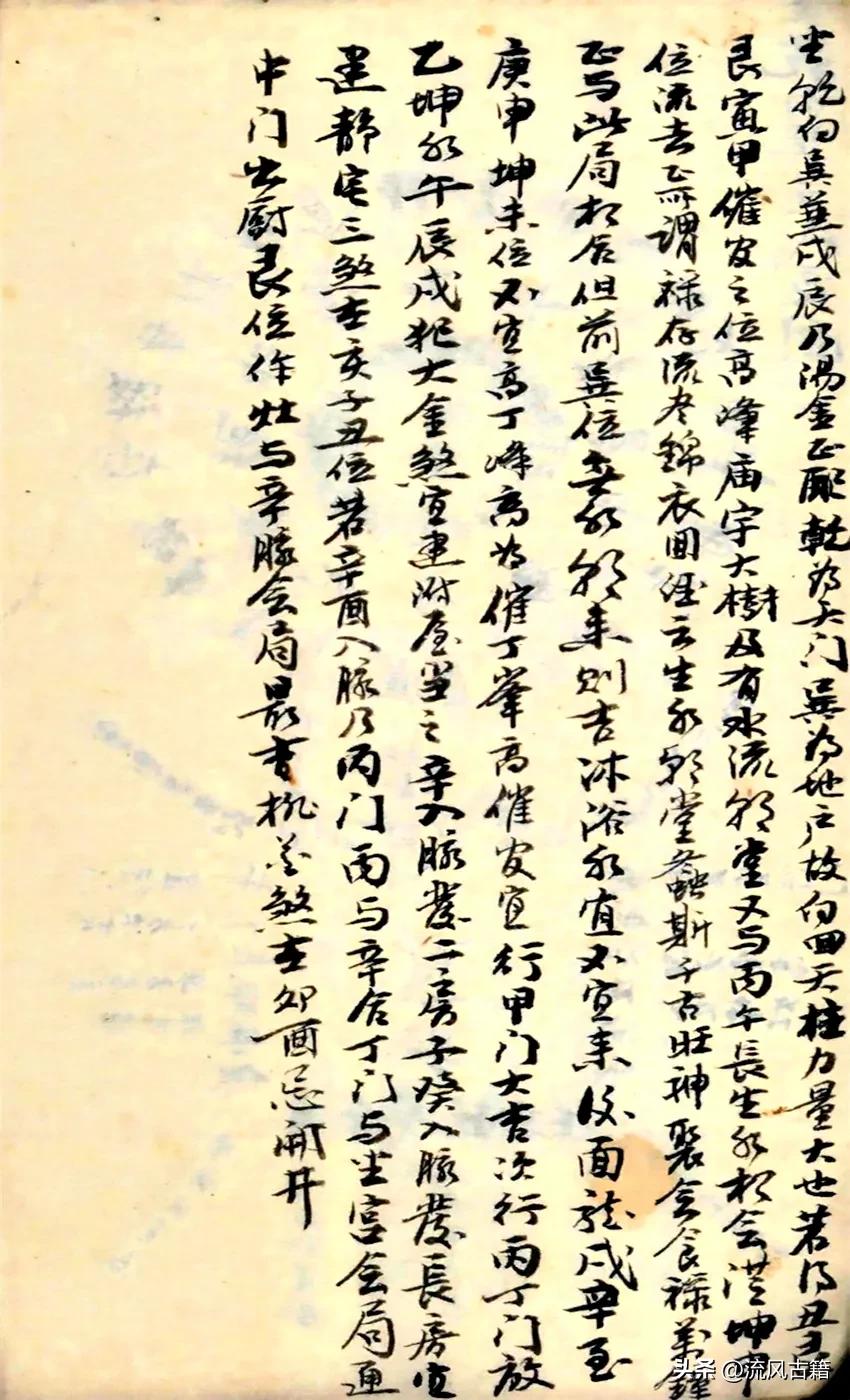 坐乾向巽兼戌辰乃湯金正配乾为天门巽为地户故向曲天柱力量大也若得丑
艮寅甲催官之位高峰庙宇大樹及有水流朝堂又与丙午長生水相会洪坤申
位流去正所謂禄存流尽錦衣囬經云生水朝堂螽斯千古旺神聚会食禄萬鍾
正与此局相合但前巽位無水朝来则吉沐浴水宜不宜来後面龍戌辛至
庚申坤未位不宜高丁峰高为催丁峯高催官宜行甲门大吉次行丙丁门放
乙坤水午辰戌犯大金煞宜建附屋当之辛入脉發二房子癸入脉發長房宜
建静宅三煞在亥子丑位若辛酉入脉乃丙门丙与辛合丁门与坐宫会局通
中门出厨艮位作灶与辛脉会局最吉桃花煞在卯酉忌開井
头条 @流风古籍